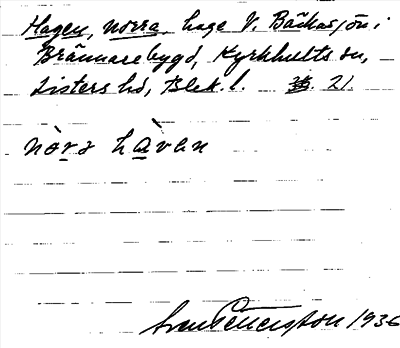 Hagen, norra, hage V. Bäckasjön i
Brännarebygd, Kyrkhults sn,
Listers hd, Blek. l. 21.
nòrə hàvən
1936